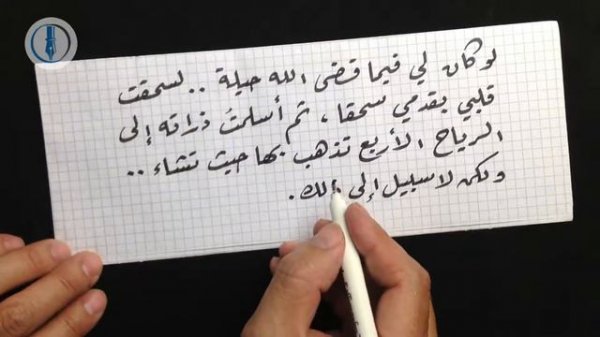 لو كان لي فيما قضى الله حيلة .. لسحقت
قلبي بقدمي سحقا ، ثم أسلمتُ ذراته إلى
الرياح الأربع تذهب بها حيث تشاء ..
ولكن لا سبيل إلى ذلك .